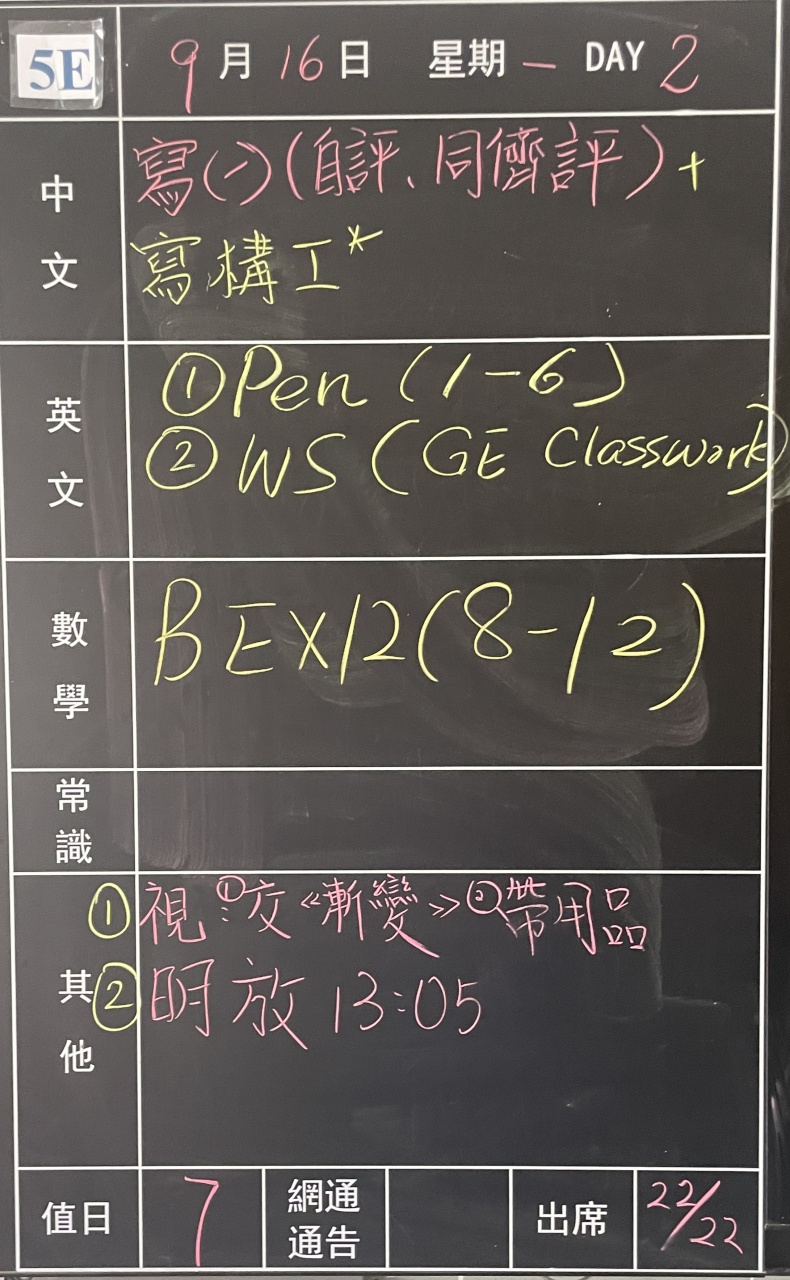 5E 9月16日 星期一 DAY 2
中文
寫(一)(自評、同儕評)+
寫構工*
英文
①Pen (1-6)
②WS (GE Classwork)
數學
BEX12(8-12)
常識
其他
①視:①交《漸變》②帶用品
②明放13:05
值日 7 網通通告 出席 22/22